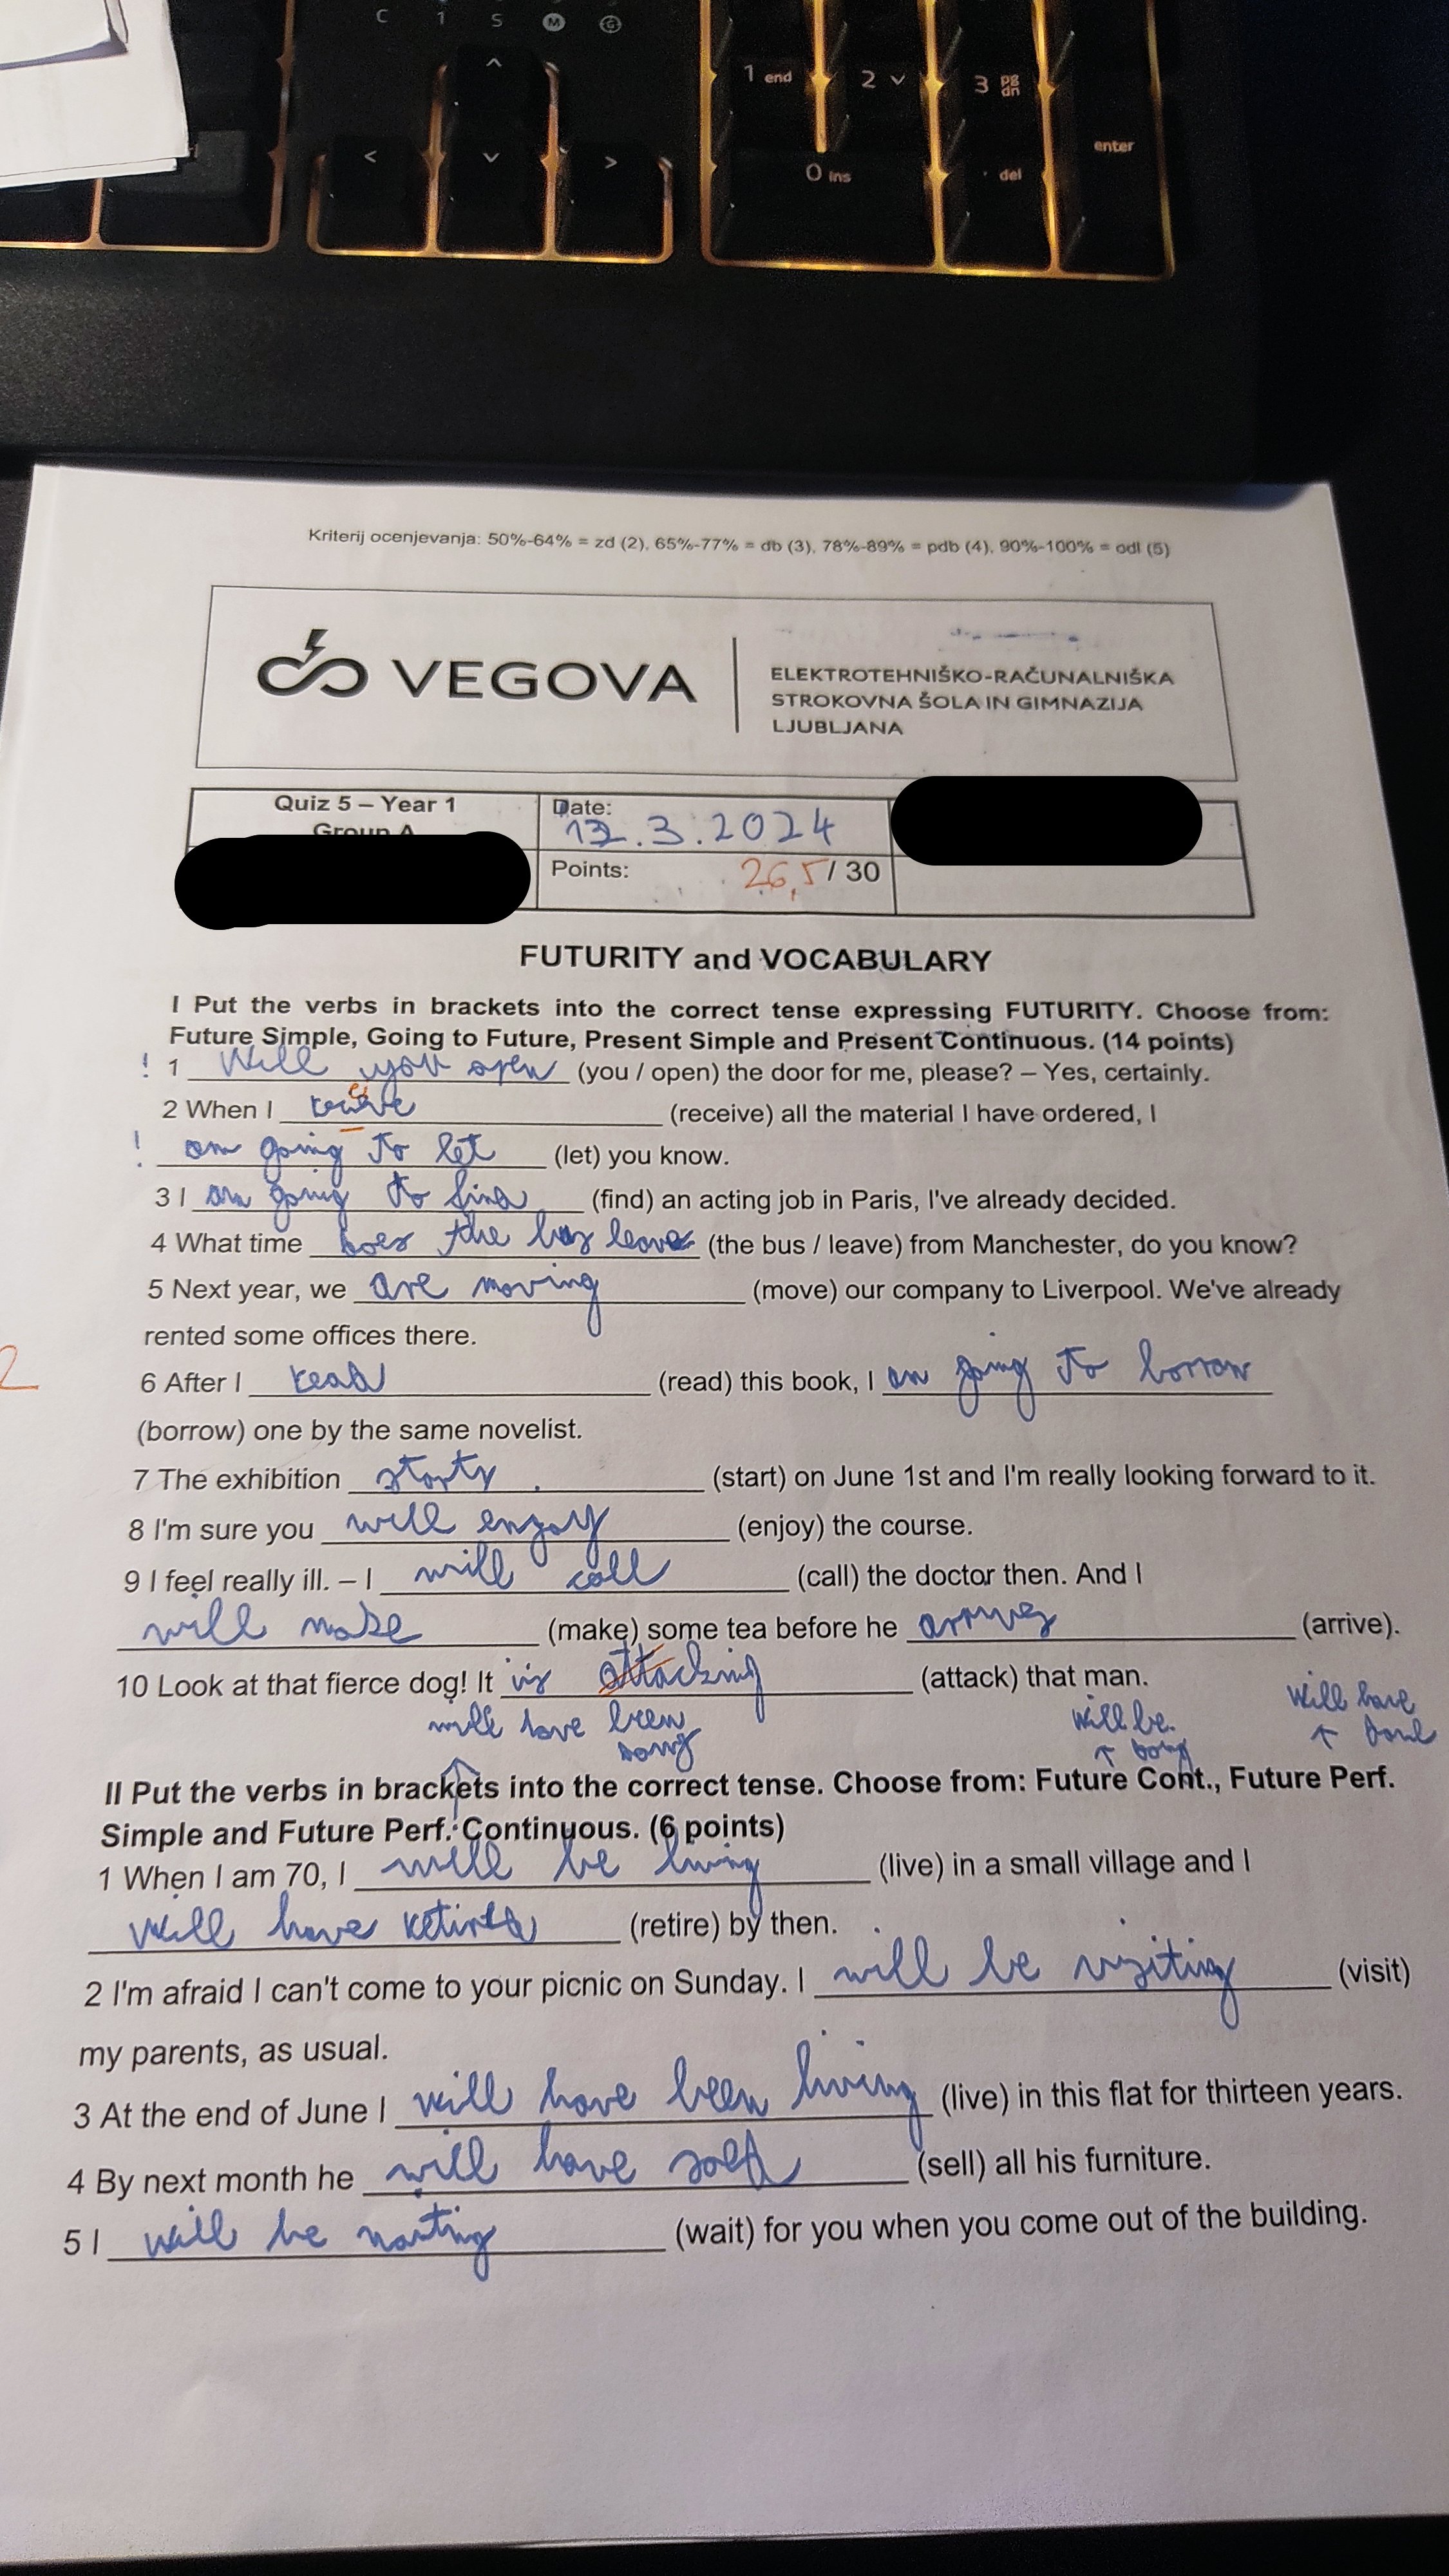 C 1 S M G
^
1 end 2 ˅ 3 pg dn
< ˅ > enter
0 ins . del
Kriterij ocenjevanja: 50%-64% = zd (2), 65%-77% = db (3), 78%-89% = pdb (4), 90%-100% = odl (5)
VEGOVA
ELEKTROTEHNIŠKO-RAČUNALNIŠKA
STROKOVNA ŠOLA IN GIMNAZIJA
LJUBLJANA
Quiz 5 – Year 1
Group A
Date:
12.3.2024
Points: 26,5 / 30
FUTURITY and VOCABULARY
I Put the verbs in brackets into the correct tense expressing FUTURITY. Choose from:
Future Simple, Going to Future, Present Simple and Present Continuous. (14 points)
! 1 Will you open (you / open) the door for me, please? – Yes, certainly.
2 When I (receive) all the material I have ordered, I
! am going to let (let) you know.
3 I am going to find (find) an acting job in Paris, I've already decided.
4 What time does the bus leave (the bus / leave) from Manchester, do you know?
5 Next year, we are moving (move) our company to Liverpool. We've already
rented some offices there.
2
6 After I read (read) this book, I am going to borrow
(borrow) one by the same novelist.
7 The exhibition starts (start) on June 1st and I'm really looking forward to it.
8 I'm sure you will enjoy (enjoy) the course.
9 I feel really ill. – I will call (call) the doctor then. And I
will make (make) some tea before he arrives (arrive).
10 Look at that fierce dog! It is attacking (attack) that man.
will have been doing
will be doing
will have done
II Put the verbs in brackets into the correct tense. Choose from: Future Cont., Future Perf.
Simple and Future Perf. Continuous. (6 points)
1 When I am 70, I will be living (live) in a small village and I
will have retired (retire) by then.
2 I'm afraid I can't come to your picnic on Sunday. I will be visiting (visit)
my parents, as usual.
3 At the end of June I will have been living (live) in this flat for thirteen years.
4 By next month he will have sold (sell) all his furniture.
5 I will be waiting (wait) for you when you come out of the building.